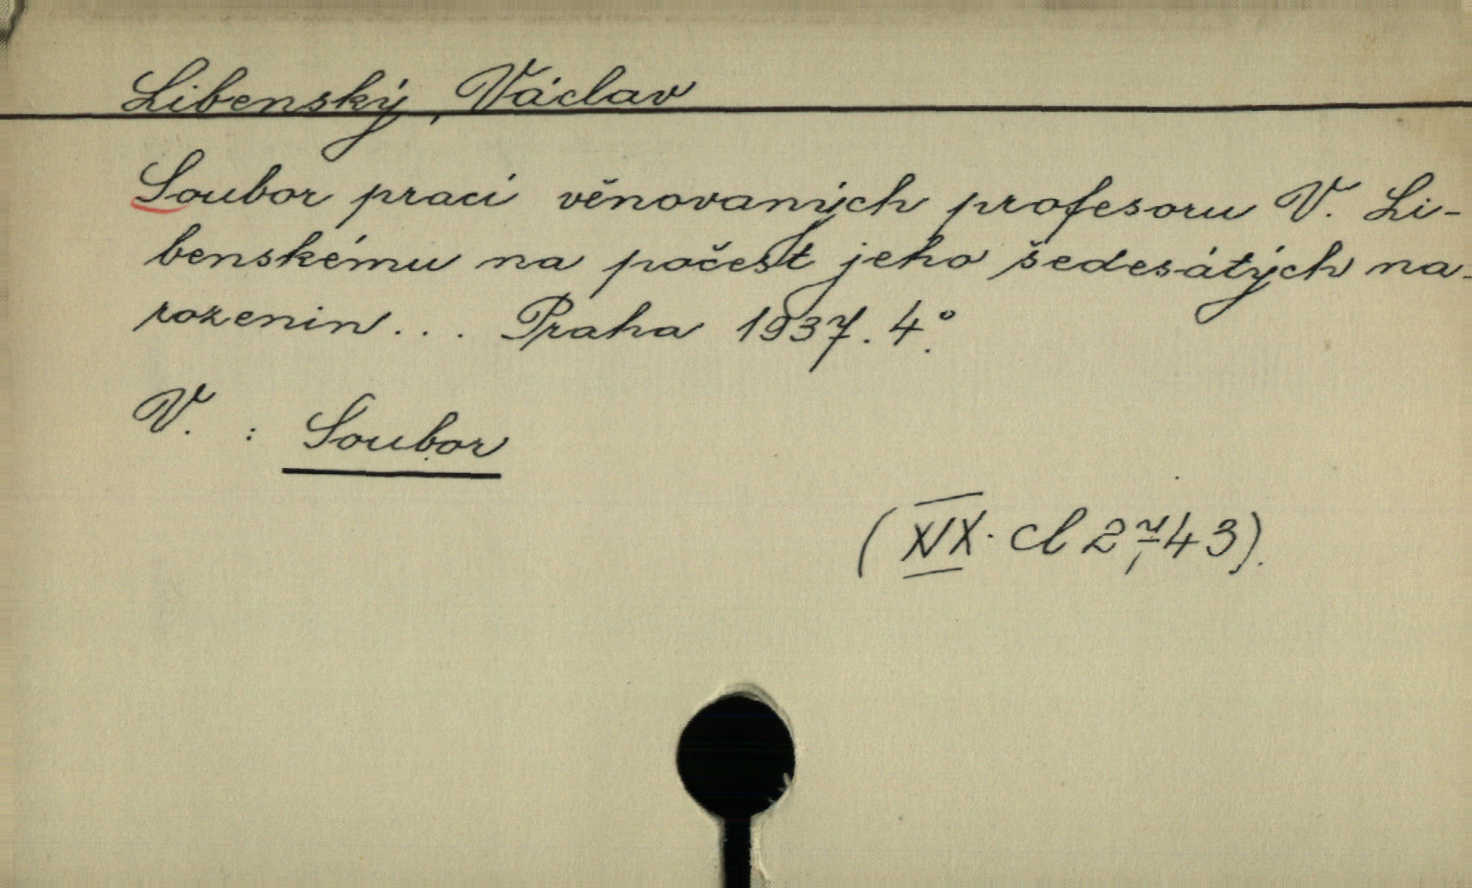 Libenský, Václav
Soubor prací věnovaných profesoru V. Li-
benskému na počest jeho šedesátých na-
rozenin... Praha 1937. 4°.
V. : Soubor
(XIX. Cl 2743).